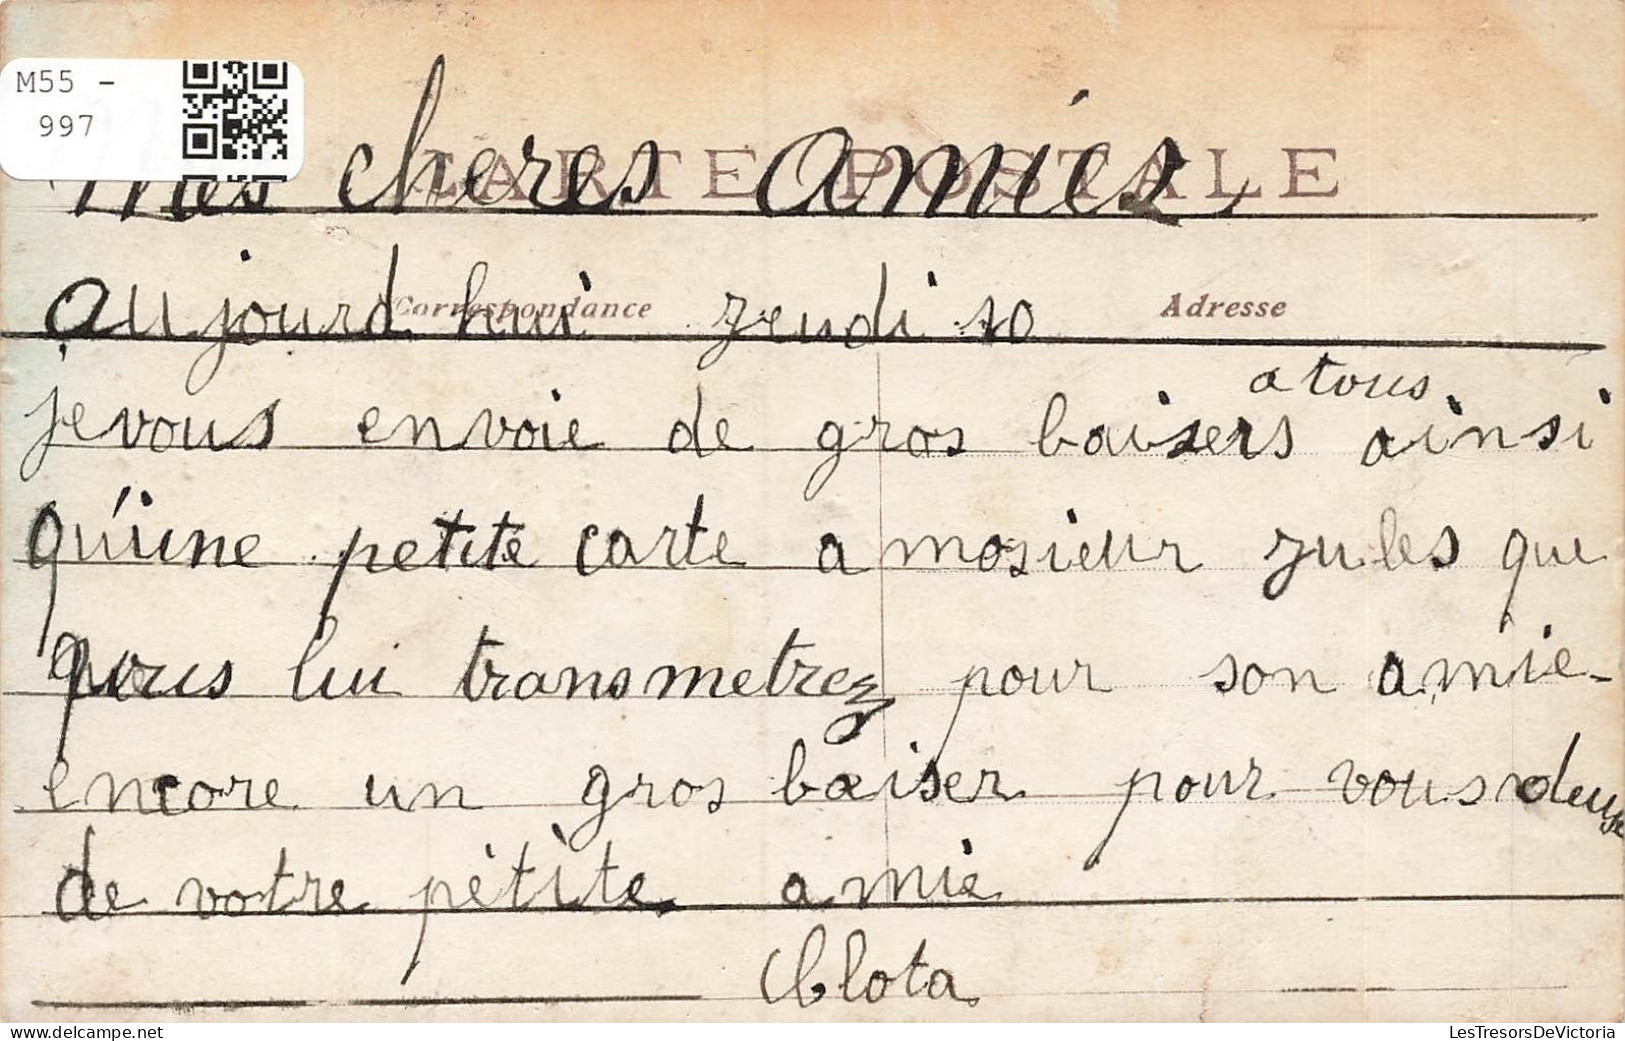 M55 -
997
CARTE POSTALE
Mes cheres amies
Correspondance
Adresse
aujourd hui jeudi 10
a tous
je vous envoie de gros baisers ainsi
qu'une petite carte a mosieur jules que
vous lui transmetrez pour son amie-
encore un gros baiser pour vous deux
de votre pètite amie
Clota
delcampe.net
LesTresorsDeVictoria